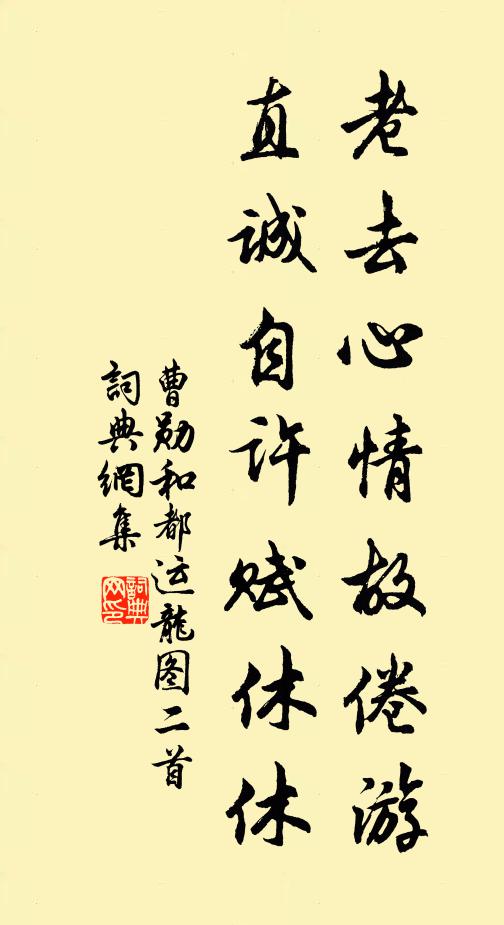 老去心情故倦游
直诚自许赋休休
曹勋和都运龍图二首
詞典網集
詞典网印